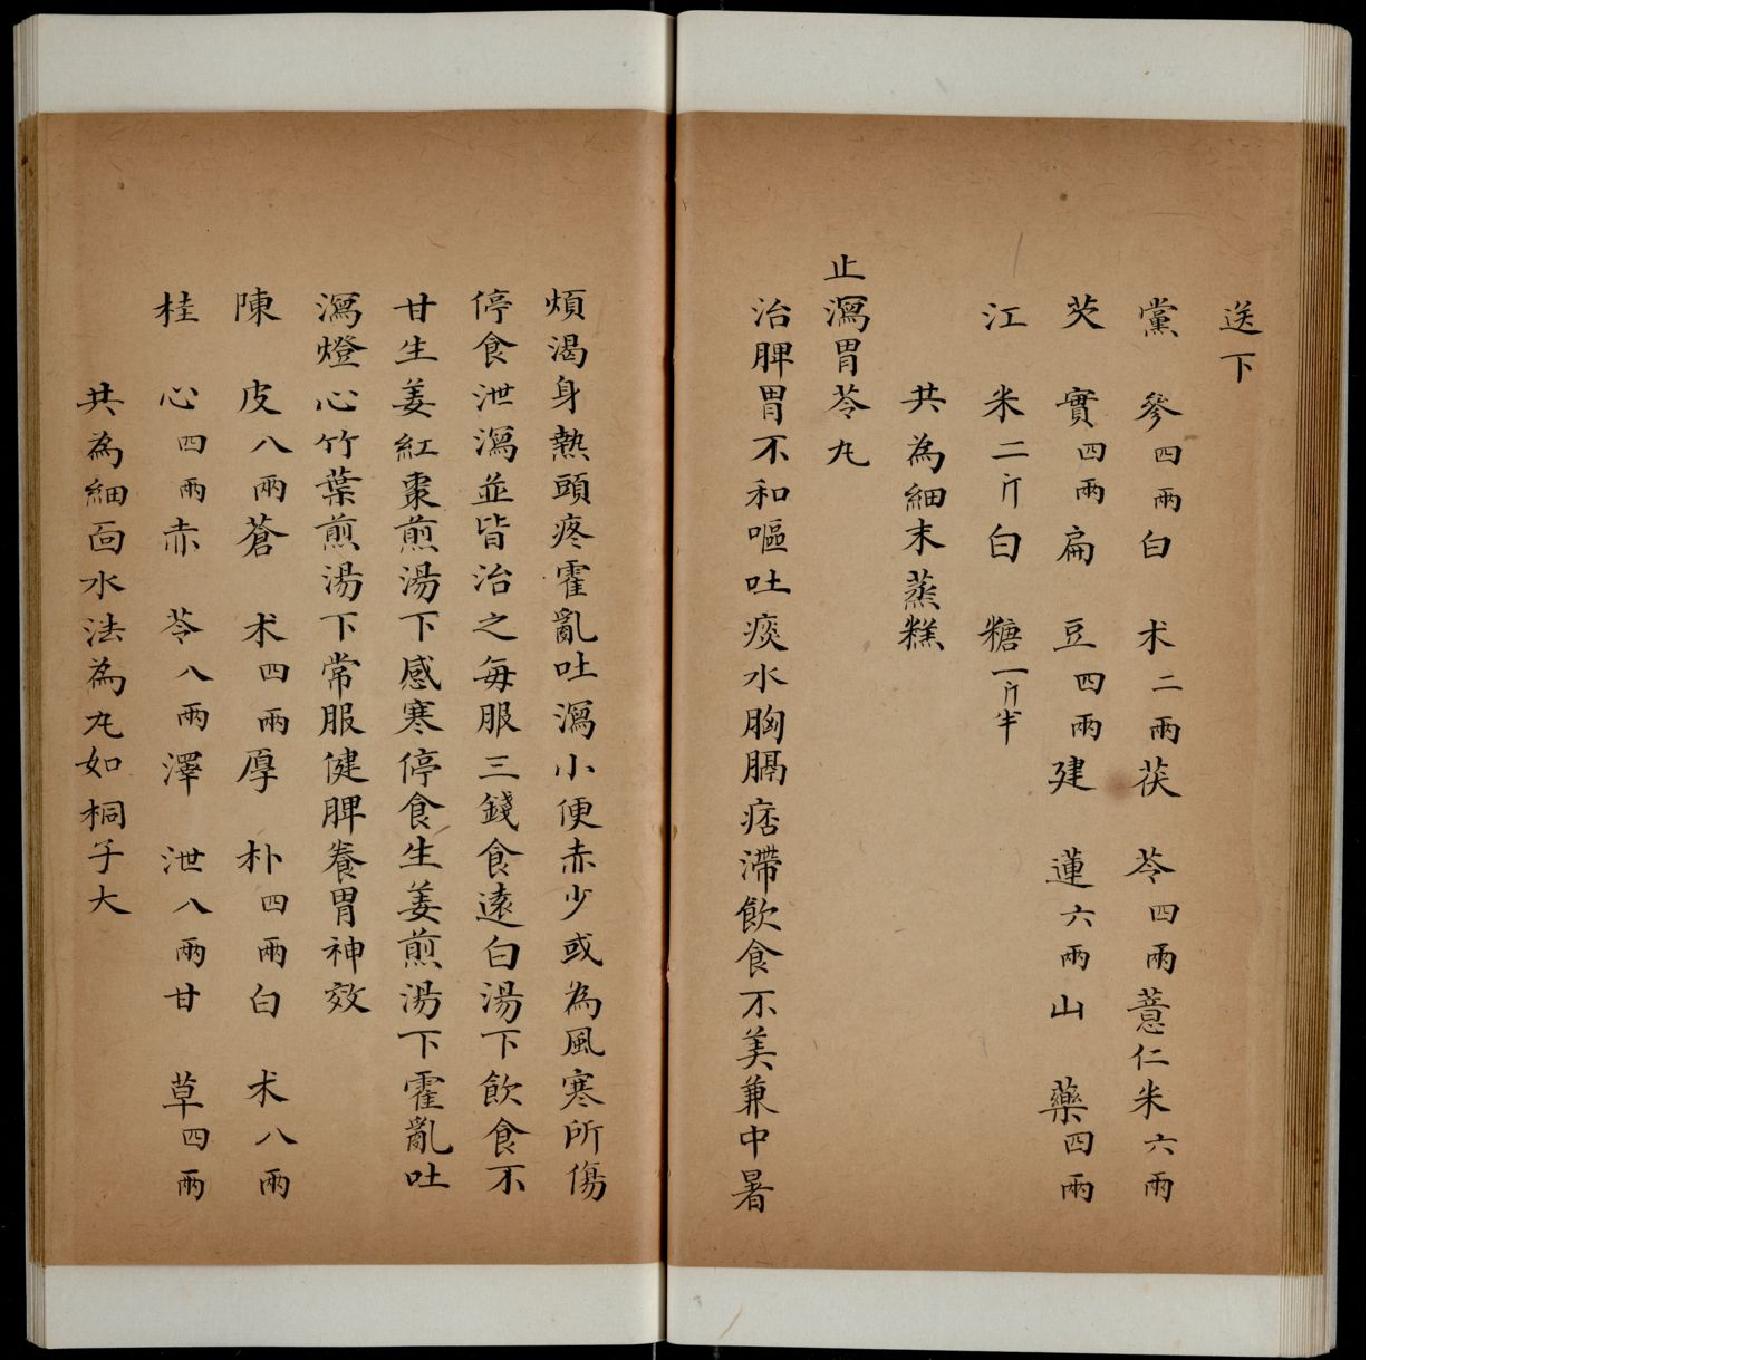 送下
黨參四兩白术二兩茯苓四兩薏仁米六兩
芡實四兩扁豆四兩建蓮六兩山藥四兩
江米二斤白糖一斤半
共為細末蒸糕
止瀉胃苓丸
治脾胃不和嘔吐痰水胸膈痞滯飲食不美兼中暑
煩渴身熱頭疼霍亂吐瀉小便赤少或為風寒所傷
停食泄瀉並皆治之每服三錢食遠白湯下飲食不
甘生姜紅棗煎湯下感寒停食生姜煎湯下霍亂吐
瀉燈心竹葉煎湯下常服健脾養胃神效
陳皮八兩蒼术四兩厚朴四兩白术八兩
桂心四兩赤苓八兩澤泄八兩甘草四兩
共為細面水法為丸如桐子大